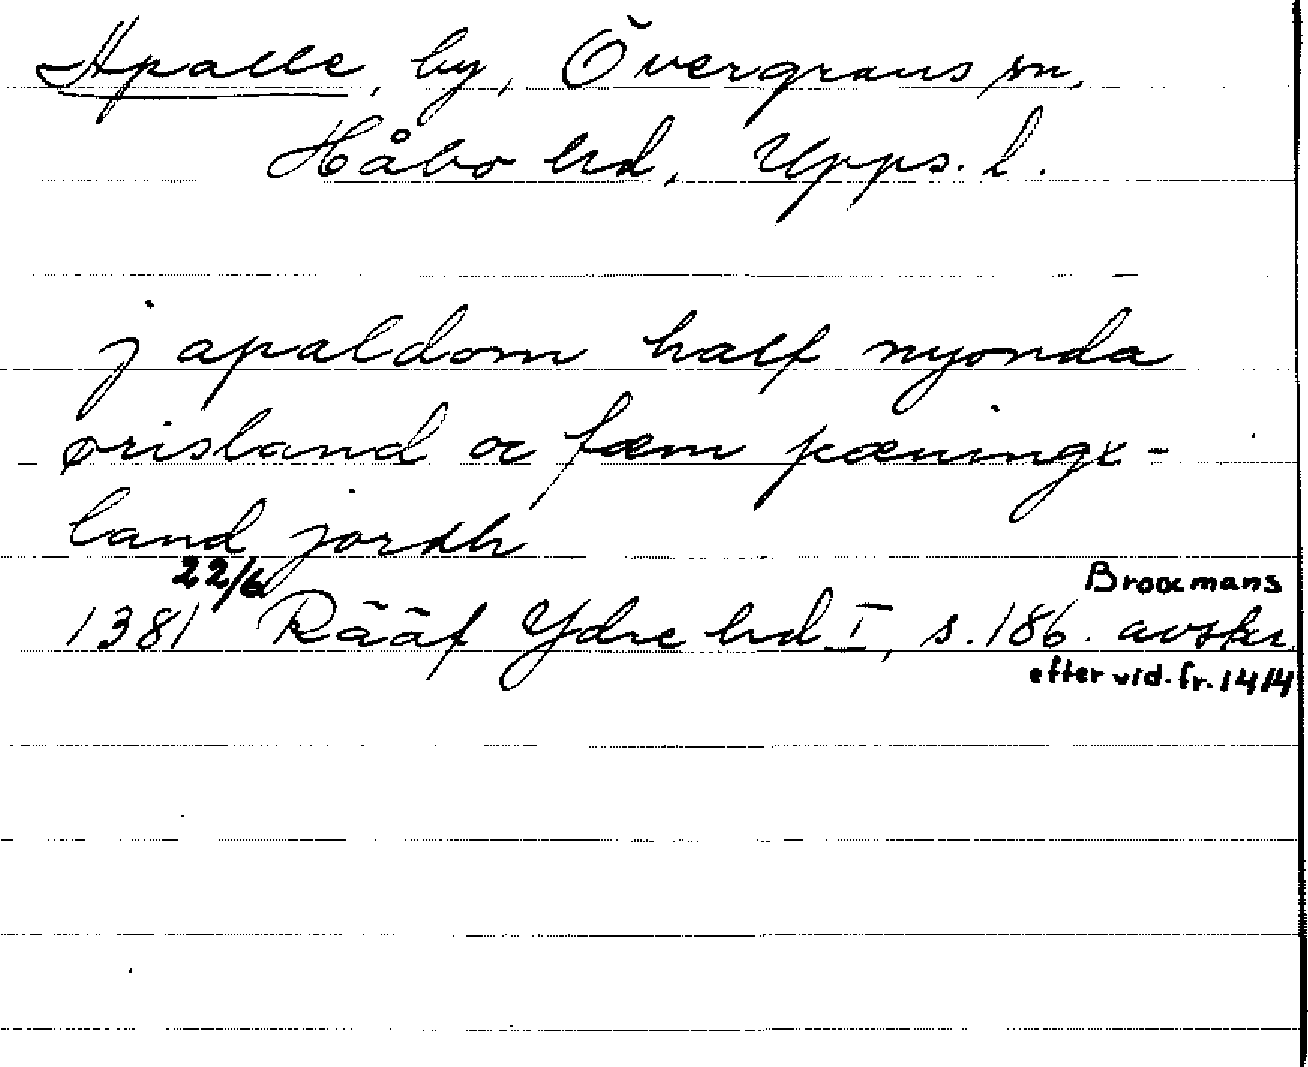 Apalle, by, Övergrans sn,
Håbo hd, Upps. l.
j apaldom half nyonda
ørisland oc fæm pænings-
land jordh
22/6
1381 Rääf Ydre hd I, s. 186. Broocmans avskr.
efter vid. fr. 1414